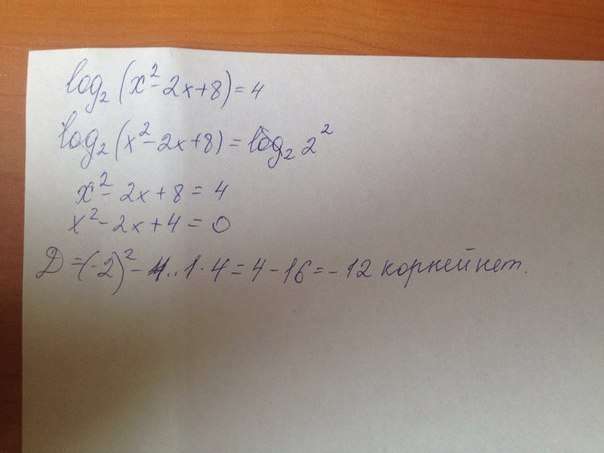 log₂(x²-2x+8)=4
log₂(x²-2x+8)=log₂2²
x²-2x+8=4
x²-2x+4=0
D=(-2)²-4·1·4=4-16=-12 корней нет.